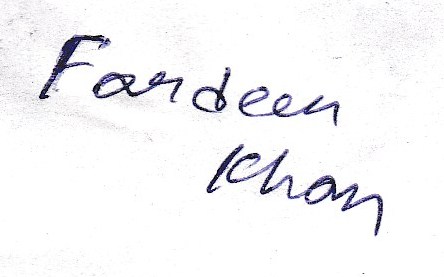 Fardeen
Khan